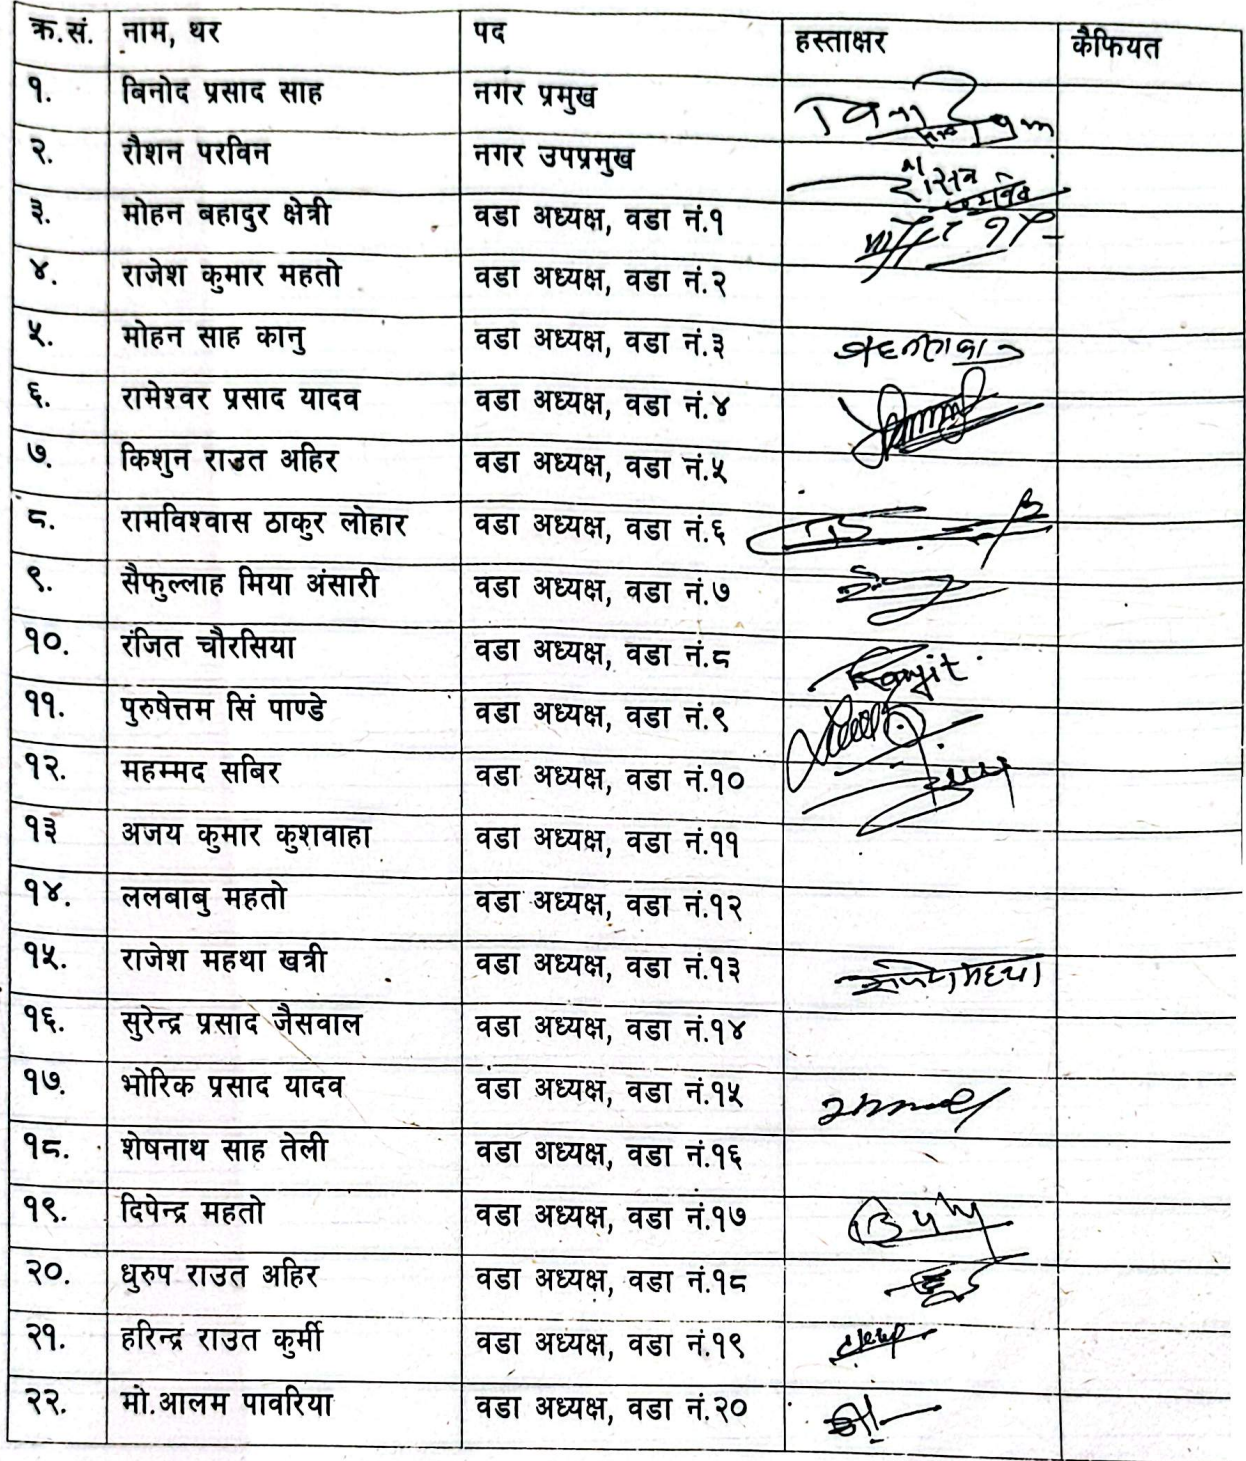 क्र.सं. नाम, थर पद हस्ताक्षर कैफियत
१. बिनोद प्रसाद साह नगर प्रमुख
२. रौशन परविन नगर उपप्रमुख
३. मोहन बहादुर क्षेत्री वडा अध्यक्ष, वडा नं.१
४. राजेश कुमार महतो वडा अध्यक्ष, वडा नं.२
५. मोहन साह कानु वडा अध्यक्ष, वडा नं.३
६. रामेश्वर प्रसाद यादव वडा अध्यक्ष, वडा नं.४
७. किशुन राउत अहिर वडा अध्यक्ष, वडा नं.५
८. रामविश्वास ठाकुर लोहार वडा अध्यक्ष, वडा नं.६
९. सैफुल्लाह मिया अंसारी वडा अध्यक्ष, वडा नं.७
१०. रंजित चौरसिया वडा अध्यक्ष, वडा नं.८ Ranjit
११. पुरुषेत्तम सिं पाण्डे वडा अध्यक्ष, वडा नं.९
१२. महम्मद सबिर वडा अध्यक्ष, वडा नं.१०
१३ अजय कुमार कुशवाहा वडा अध्यक्ष, वडा नं.११
१४. ललबाबु महतो वडा अध्यक्ष, वडा नं.१२
१५. राजेश महथा खत्री वडा अध्यक्ष, वडा नं.१३
१६. सुरेन्द्र प्रसाद जैसवाल वडा अध्यक्ष, वडा नं.१४
१७. भोरिक प्रसाद यादव वडा अध्यक्ष, वडा नं.१५
१८. शेषनाथ साह तेली वडा अध्यक्ष, वडा नं.१६
१९. दिपेन्द्र महतो वडा अध्यक्ष, वडा नं.१७
२०. धुरुप राउत अहिर वडा अध्यक्ष, वडा नं.१८
२१. हरिन्द्र राउत कुर्मी वडा अध्यक्ष, वडा नं.१९
२२. मो.आलम पावरिया वडा अध्यक्ष, वडा नं.२०